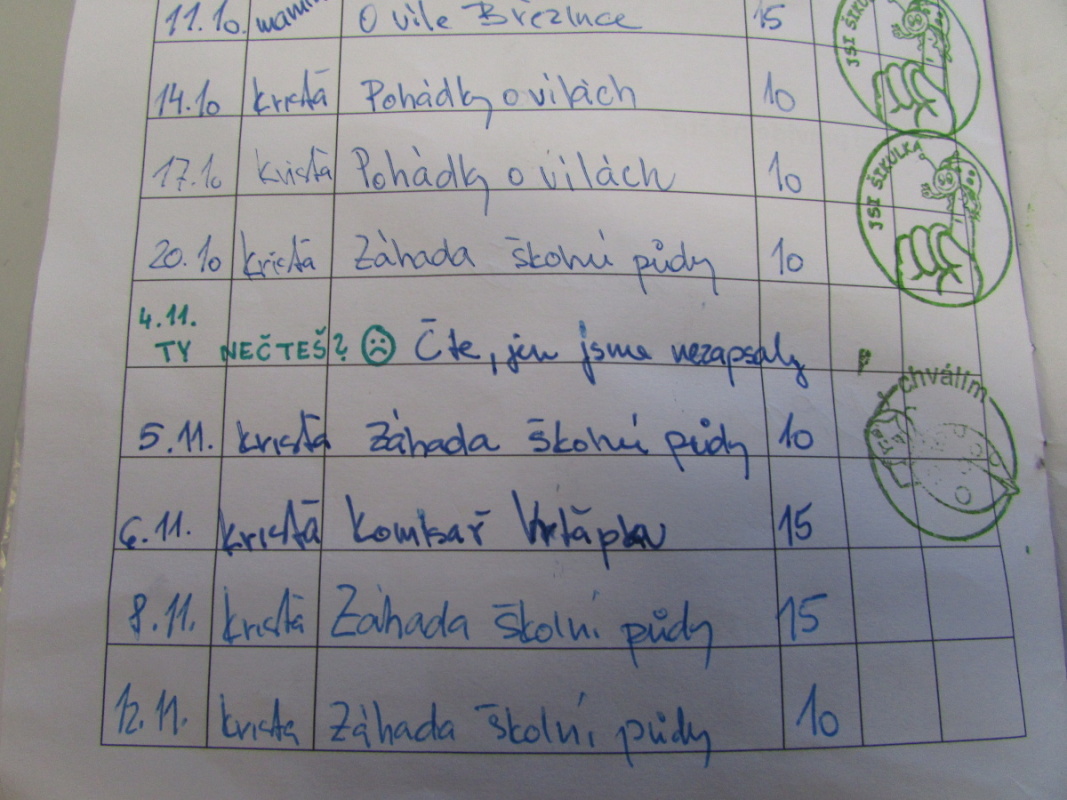 11.10. O víle Březince 15
14.10 kristă Pohádky o vílách 10
JSI ŠIKULKA
17.10 kristă Pohádky o vílách 10
JSI ŠIKULKA
20.10 kristă Záhada školní půdy 10
4.11.
TY NEČTEŠ? ☹ Čte, jen jsme nezapsaly
chválím
5.11. kristă Záhada školní půdy 10
6.11. kristă 15
8.11. kristă Záhada školní půdy 15
12.11. krista Záhada školní půdy 10